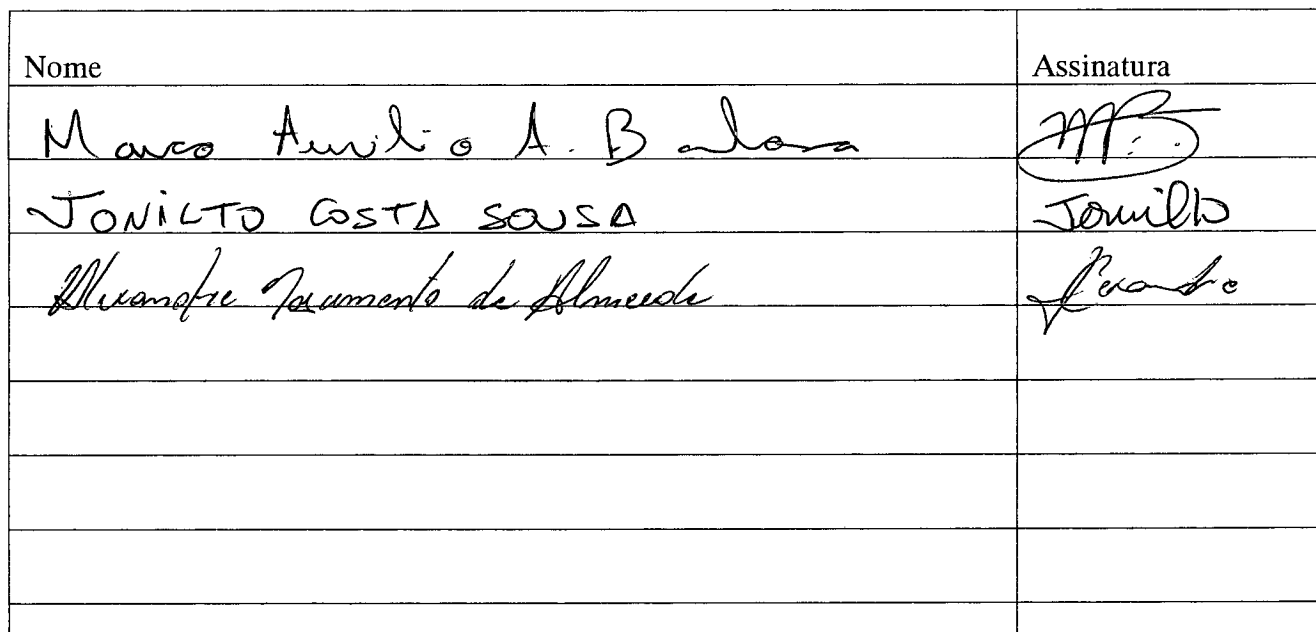 Nome Assinatura
Marco Aurilio A. Barbosa
JONILTO COSTA SOUSA Jonilto
Alexandre Nascimento de Almeida Alexandre